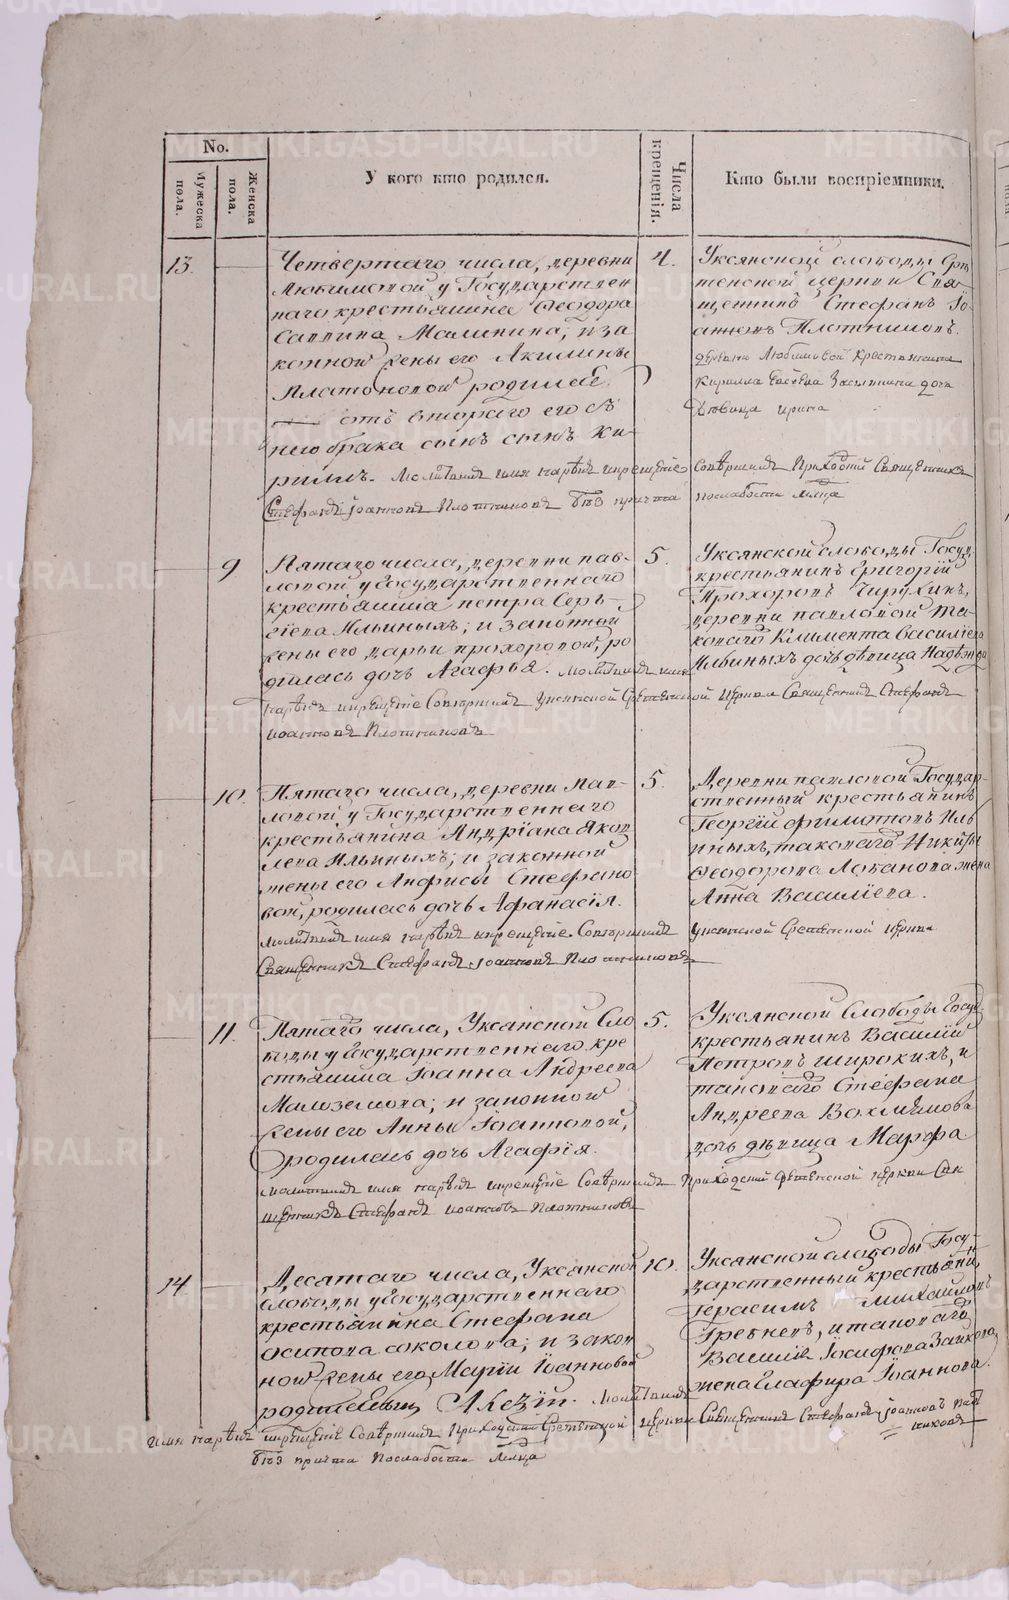 No.
Мужеска пола.
Женска пола.
У кого кто родился.
Числа крещенія.
Кто были воспріемники.
13.
Четвертаго числа, деревни
Любимовой у Государствен
наго крестьянина Феодора
Саввина Малинина, и за
конной жены его Акилины
Платоновой родился
отъ втораго его съ
нею брака сынъ сынъ Ки-
риллъ. Молитвилъ имя нарѣкъ и крещеніе
Стефанъ Іоанновъ Плотниковъ безъ причта
4.
Уксянской слободы Срѣ
тенской церкви Свя-
щенникъ Стефанъ Іо-
анновъ Плотниковъ.
деревни Любимовой крестьянина
Кирилла дочь
дѣвица Ирина
совершилъ Приходскій Священникъ
послабости
9
Пятаго числа, деревни Пав-
ловой у Государственнаго
крестьянина Петра Серь-
гіева Ильиныхъ; и законной
жены его Дарьи Прохоровой, ро
дилась дочь Агафья. Молитвилъ имя
нарѣкъ и крещеніе Совершилъ Уксянской Сретенской церкви Священникъ Стефанъ
Иоанновъ Плотниковъ
5.
Уксянской слободы Госуд
крестьянинъ Григорій
Прохоровъ Чирухинъ,
деревни Павловой та-
коваго Климента Васильева
Ильиныхъ дочь дѣвица Надежда
10.
Пятаго числа, деревни Пав-
ловой у Государственнаго
крестьянина Андріана Яков
лева Ильиныхъ; и законной
жены его Анфисы Стефано
вой, родилась дочь Афанасія.
Молитвилъ имя нарѣкъ и крещеніе Совершилъ
Священникъ Стефанъ Іоанновъ Плотниковъ
5.
Деревни Павловой Государ-
ственный крестьянинъ
Георгій Филатовъ Иль
иныхъ, таковаго Никиты
Феодорова Лобанова жена
Анна Васильева.
Уксянской Сретенской церкви
11.
Пятаго числа, Уксянской Сло
боды у Государственнаго кре
стьянина Іоанна Андреева
Малоземова; и законной
жены его Анны Іоанновой,
родилась дочь Агафія.
Молитвилъ имя нарѣкъ и крещеніе Совершилъ Приходской Сретенской церкви Свя
щенникъ Стефанъ Иоанновъ Плотниковъ
5.
Уксянской Слободы Госуд
крестьянинъ Василій
Петровъ Широкихъ, и
таковаго Стефана
Андреева Вохмякова
дочь дѣвица Марфа
14.
Десятаго числа, Уксянской
слободы у Государственнаго
крестьянина Стефана
Осипова Соколова; и закон
ной жены его Маріи Іоанновой
родился сынъ Алексій. Молитвилъ
имя нарѣкъ и крещеніе Совершилъ Приходской Сретенской церкви Священникъ Стефанъ Іоанновъ Плот
никовъ
безъ причта послабости
10.
Уксянской слободы Госу-
дарственный крестьянин
Герасимъ Михайловъ
Гребневъ, и таковаго
Василія Іосифова Заикова
жена Глафира Іоаннова.
METRIKI.GASO-URAL.RU